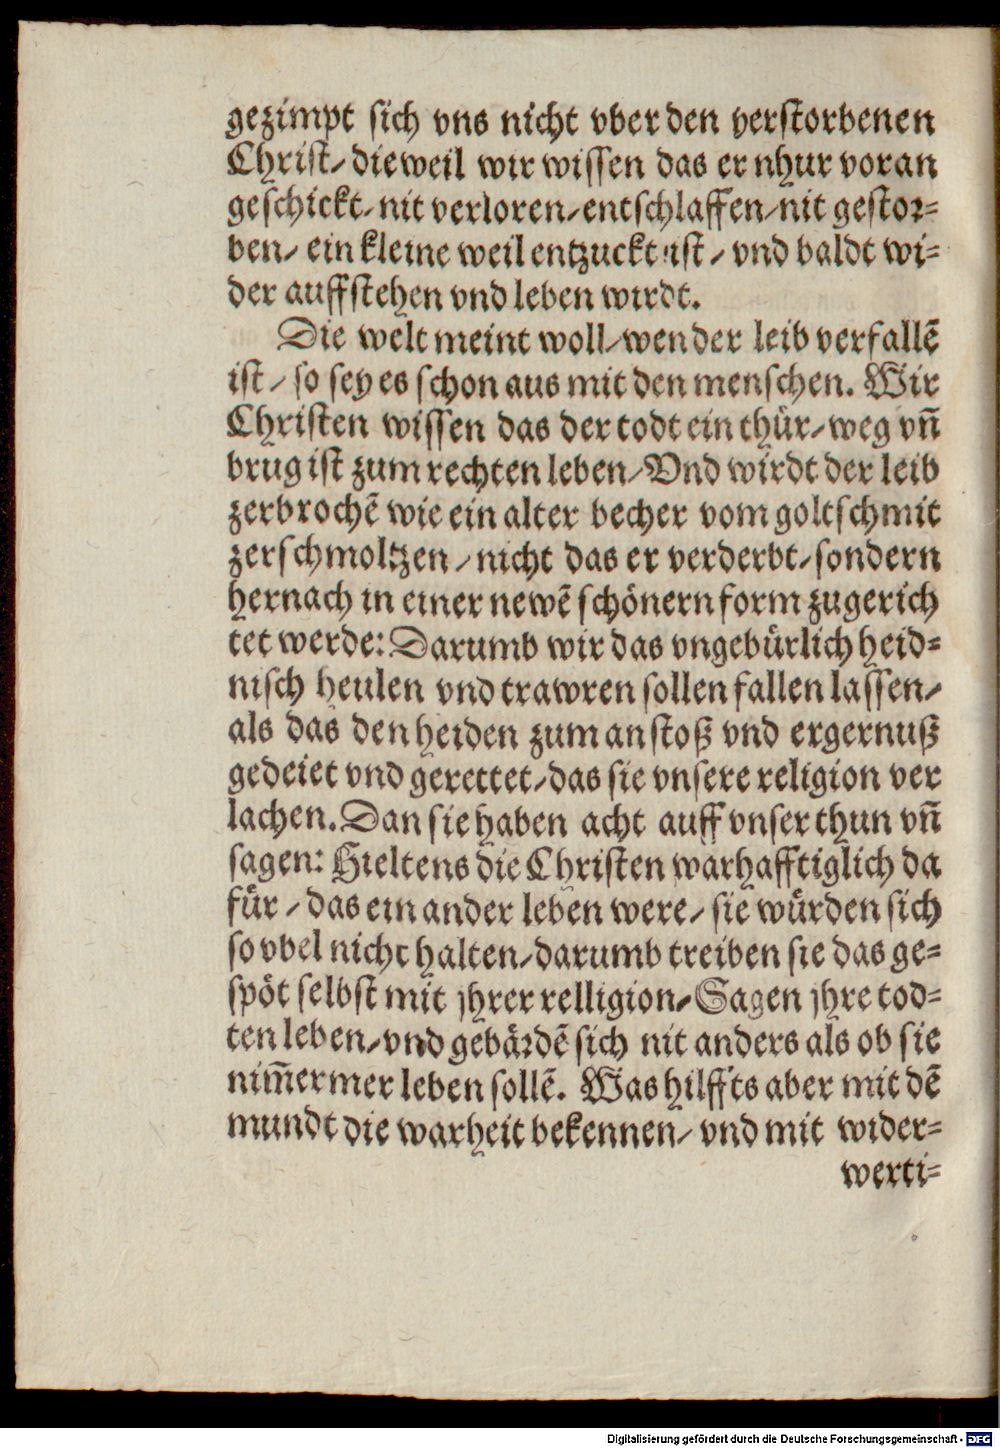 gezimpt sich vns nicht vber den verstorbenen
Christ/ dieweil wir wissen das er nhur voran
geschickt/ nit verloren/ entschlaffen/ nit gestor-
ben/ ein kleine weil entzuckt ist/ vnd baldt wi-
der auffstehen vnd leben wirdt.
Die welt meint woll/ wen der leib verfallē
ist/ so sey es schon aus mit den menschen. Wir
Christen wissen das der todt ein thür/ weg vñ
brug ist zum rechten leben/ Vnd wirdt der leib
zerbrochē wie ein alter becher vom goltschmit
zerschmoltzen/ nicht das er verderbt/ sondern
hernach in einer newē schönern form zugerich
tet werde: Darumb wir das vngebürlich heid-
nisch heulen vnd trawren sollen fallen lassen/
als das den heiden zum anstoß vnd ergernuß
gedeiet vnd gerettet/ das sie vnsere religion ver
lachen. Dan sie haben acht auff vnser thun vñ
sagen: Hieltens die Christen warhafftiglich da
für/ das ein ander leben were/ sie würden sich
so vbel nicht halten/ darumb treiben sie das ge-
spöt selbst mit jhrer relligion/ Sagen jhre tod-
ten leben/ vnd gebärdē sich nit anders als ob sie
nim̄ermer leben sollē. Was hilffts aber mit dē
mundt die warheit bekennen/ vnd mit wider-
werti-
Digitalisierung gefördert durch die Deutsche Forschungsgemeinschaft - DFG